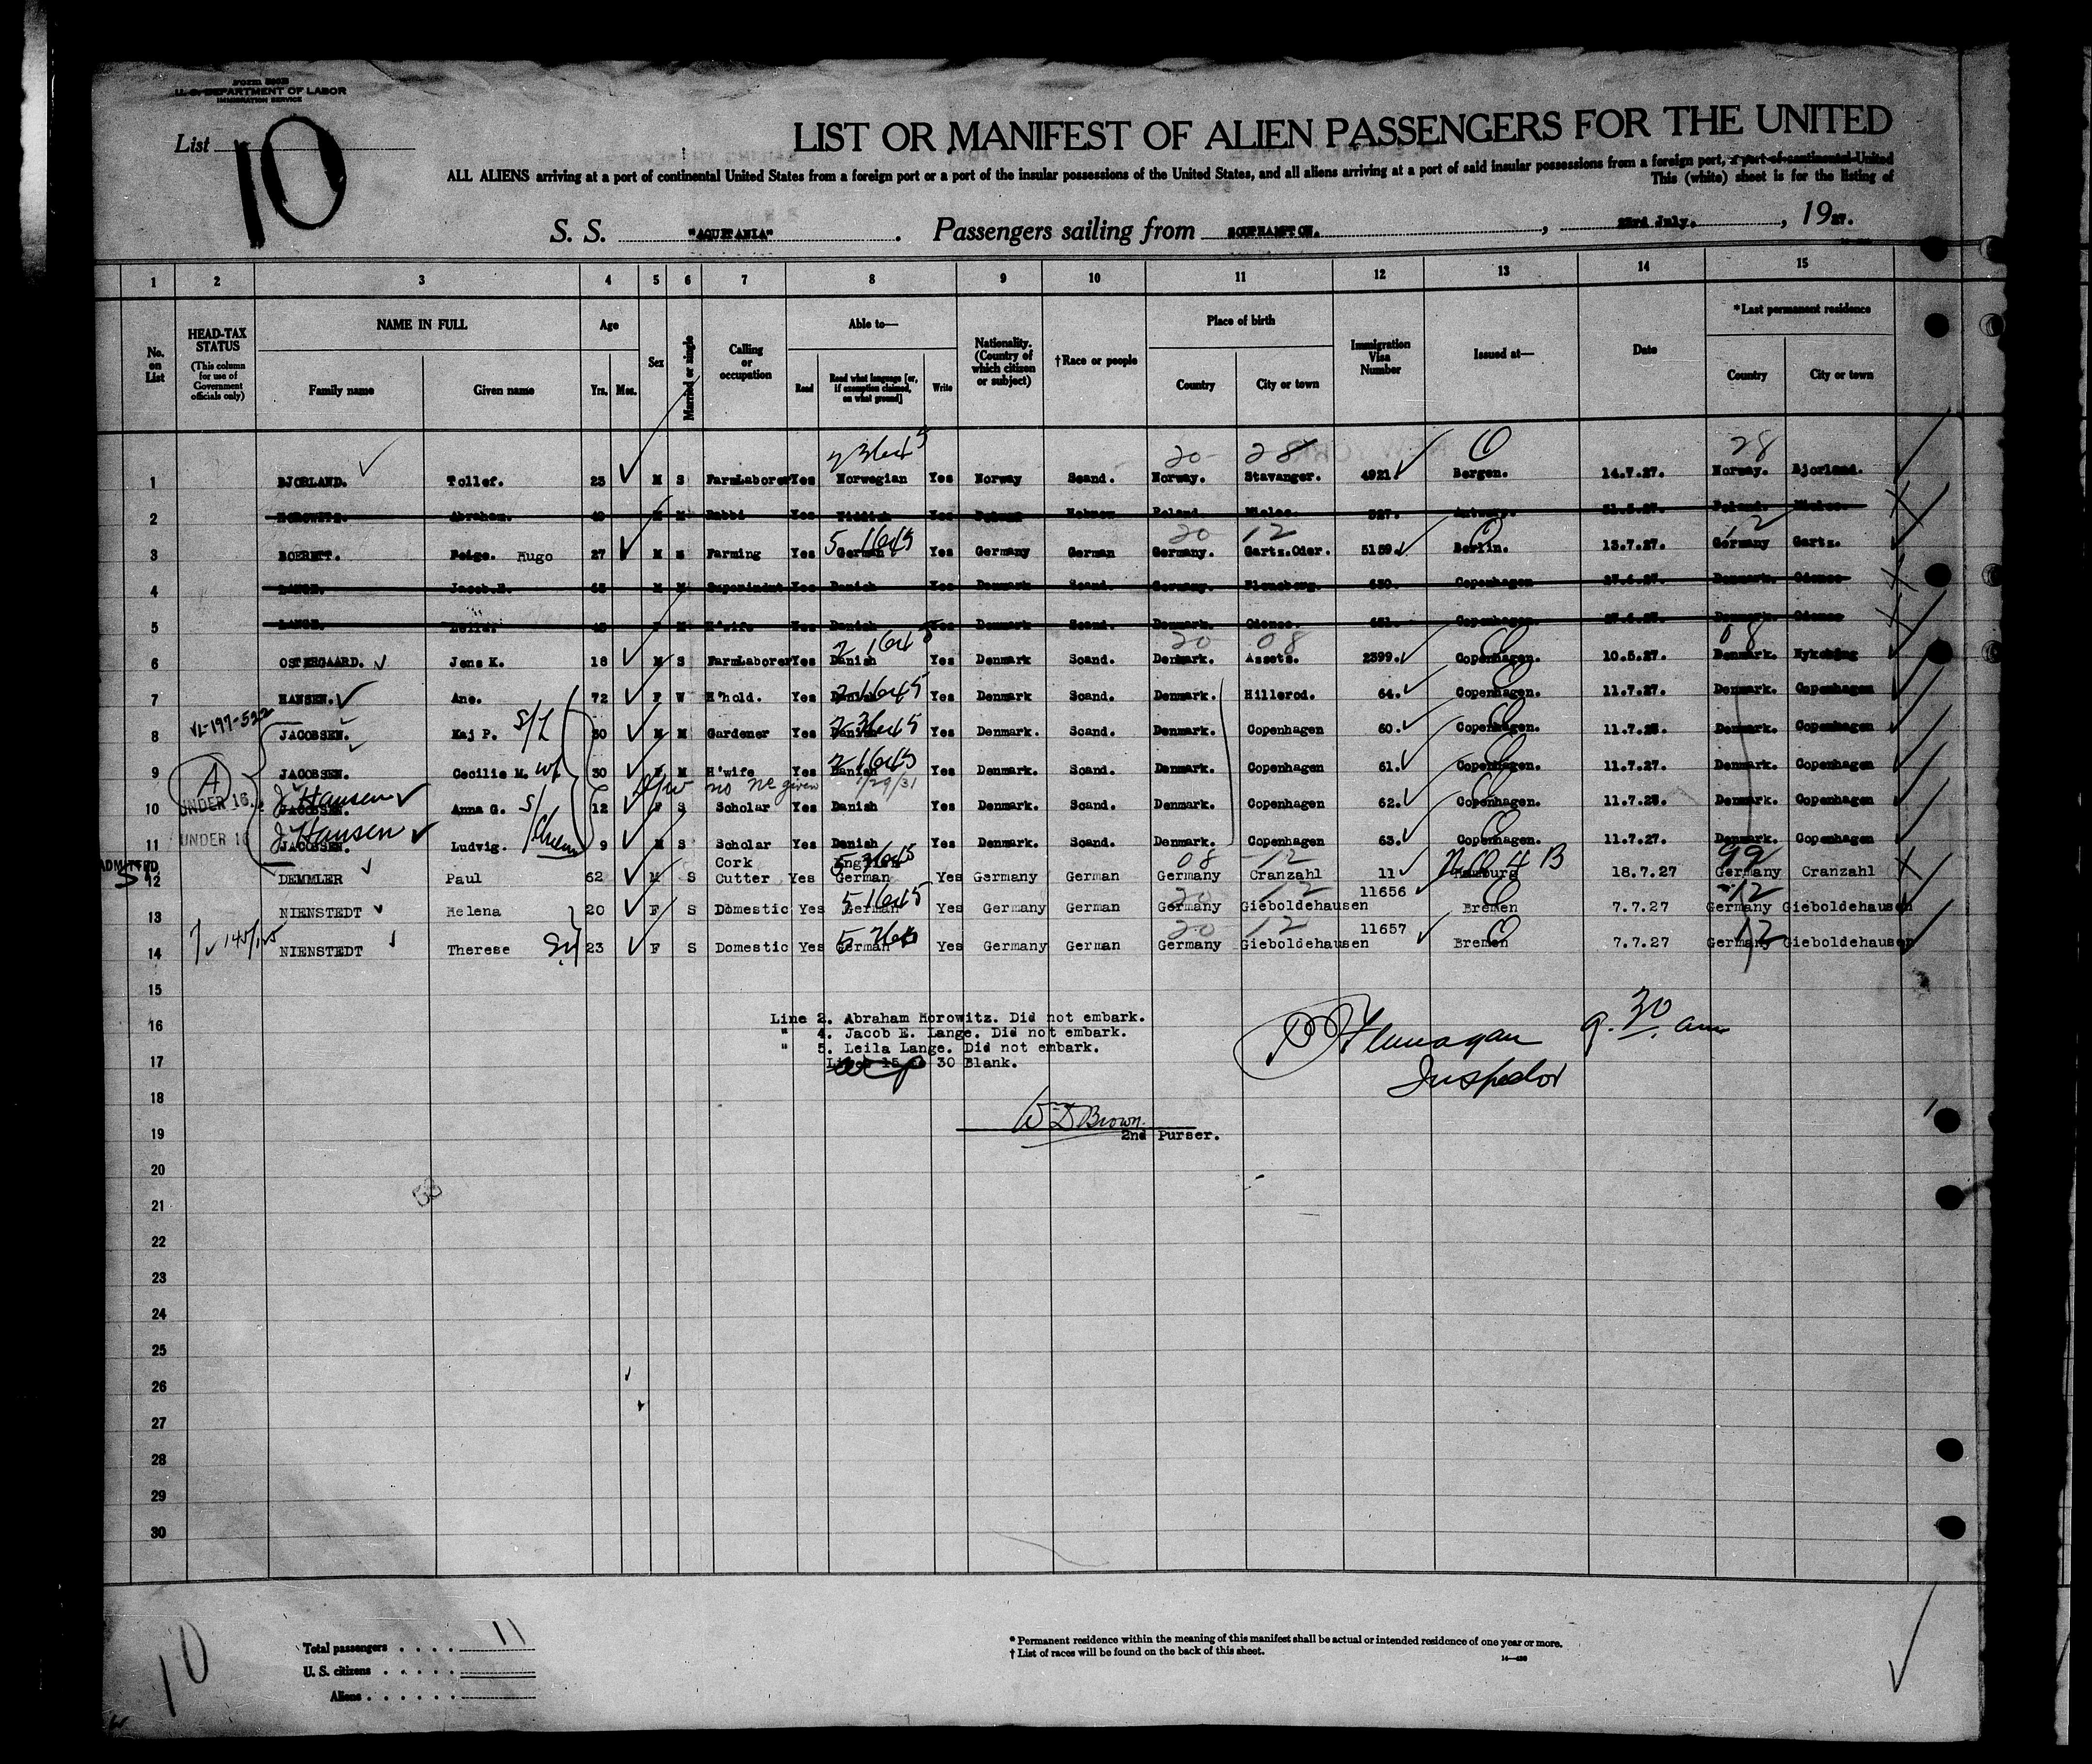 Form 500B
U. S. DEPARTMENT OF LABOR
IMMIGRATION SERVICE
List 10
LIST OR MANIFEST OF ALIEN PASSENGERS FOR THE UNITED
ALL ALIENS arriving at a port of continental United States from a foreign port or a port of the insular possessions of the United States, and all aliens arriving at a port of said insular possessions from a foreign port, a port of continental United
This (white) sheet is for the listing of
S. S. "AQUITANIA". Passengers sailing from SOUTHAMPTON. , 23rd July. , 1927.
1 2 3 4 5 6 7 8 9 10 11 12 13 14 15
No. on List
HEAD-TAX STATUS (This column for use of Government officials only)
NAME IN FULL
Family name Given name
Age
Yrs. Mos.
Sex
Married or single
Calling or occupation
Able to—
Read
Read what language [or, if exemption claimed, on what ground]
Write
Nationality. (Country of which citizen or subject)
†Race or people
Place of birth
Country City or town
Immigration Visa Number
Issued at—
Date
*Last permanent residence
Country City or town
1 BJORLAND. Tollef. 23 M S FarmLaborer Yes Norwegian Yes Norway Scand. Norway. Stavanger. 4921 Bergen. 14.7.27. Norway. Bjorland.
2 HOROWITZ. Abraham. M Rabbi Yes Yiddish Yes Poland Hebrew Poland. Mielec. 327. Antwerp. Poland. Mielec.
3 BOERETT. Hugo 27 M S Farming Yes German Yes Germany German Germany. Gartz.Oder. 5159. Berlin. 13.7.27. Germany Gartz.
4 LANGE. Jacob.E. M M Yes Danish Yes Denmark Scand. Germany. Flensberg. 630. Copenhagen 27.6.27. Denmark. Odense
5 LANGE. Leila. F M H'wife Yes Danish Yes Denmark Scand. Denmark. Odense. 631. Copenhagen. 27.6.27. Denmark. Odense
6 OSTERGAARD. Jens K. 18 M S FarmLaborer Yes Danish Yes Denmark Scand. Denmark. Assets. 2399. Copenhagen. 10.5.27. Denmark. Nykobing
7 HANSEN. Ane. 72 F W H'hold. Yes Danish Yes Denmark Scand. Denmark. Hillerod. 64. Copenhagen. 11.7.27. Denmark. Copenhagen
VL-197-522
8 JACOBSEN. Kaj P. S/L 30 M M Gardener Yes Danish Yes Denmark. Scand. Denmark. Copenhagen 60. Copenhagen. 11.7.27. Denmark. Copenhagen
A
9 JACOBSEN. Cecilie M. wf 30 F M H'wife Yes Danish Yes Denmark. Scand. Denmark. Copenhagen 61. Copenhagen. 11.7.27. Denmark. Copenhagen
no given 1/29/31
UNDER 16. J Hansen
10 JACOBSEN. Anna G. 12 F S Scholar Yes Danish Yes Denmark. Scand. Denmark. Copenhagen 62. Copenhagen. 11.7.27. Denmark. Copenhagen
UNDER 16 J Hansen
11 JACOBSEN. Ludvig. 9 M S Scholar Yes Danish Yes Denmark. Scand. Denmark. Copenhagen 63. Copenhagen. 11.7.27. Denmark. Copenhagen
ADMITTED
12 DEMMLER Paul 62 M S Cork Cutter Yes English German Yes Germany German Germany Cranzahl 11 Hamburg 18.7.27 Germany Cranzahl
13 NIENSTEDT Helena 20 F S Domestic Yes German Yes Germany German Germany Gieboldehausen 11656 Bremen 7.7.27 Germany Gieboldehausen
14 NIENSTEDT Therese 23 F S Domestic Yes German Yes Germany German Germany Gieboldehausen 11657 Bremen 7.7.27 Germany Gieboldehausen
15
16
17
18
19
20
21
22
23
24
25
26
27
28
29
30
Line 2. Abraham Horowitz. Did not embark.
" 4. Jacob E. Lange. Did not embark.
" 5. Leila Lange. Did not embark.
Lines 15 to 30 Blank.
P Flannagan 9.30 am
Inspector
W D Brown.
2nd Purser.
53
10
Total passengers . . . . 11
U. S. citizens . . . . .
Aliens . . . . . .
* Permanent residence within the meaning of this manifest shall be actual or intended residence of one year or more.
† List of races will be found on the back of this sheet.
14—430